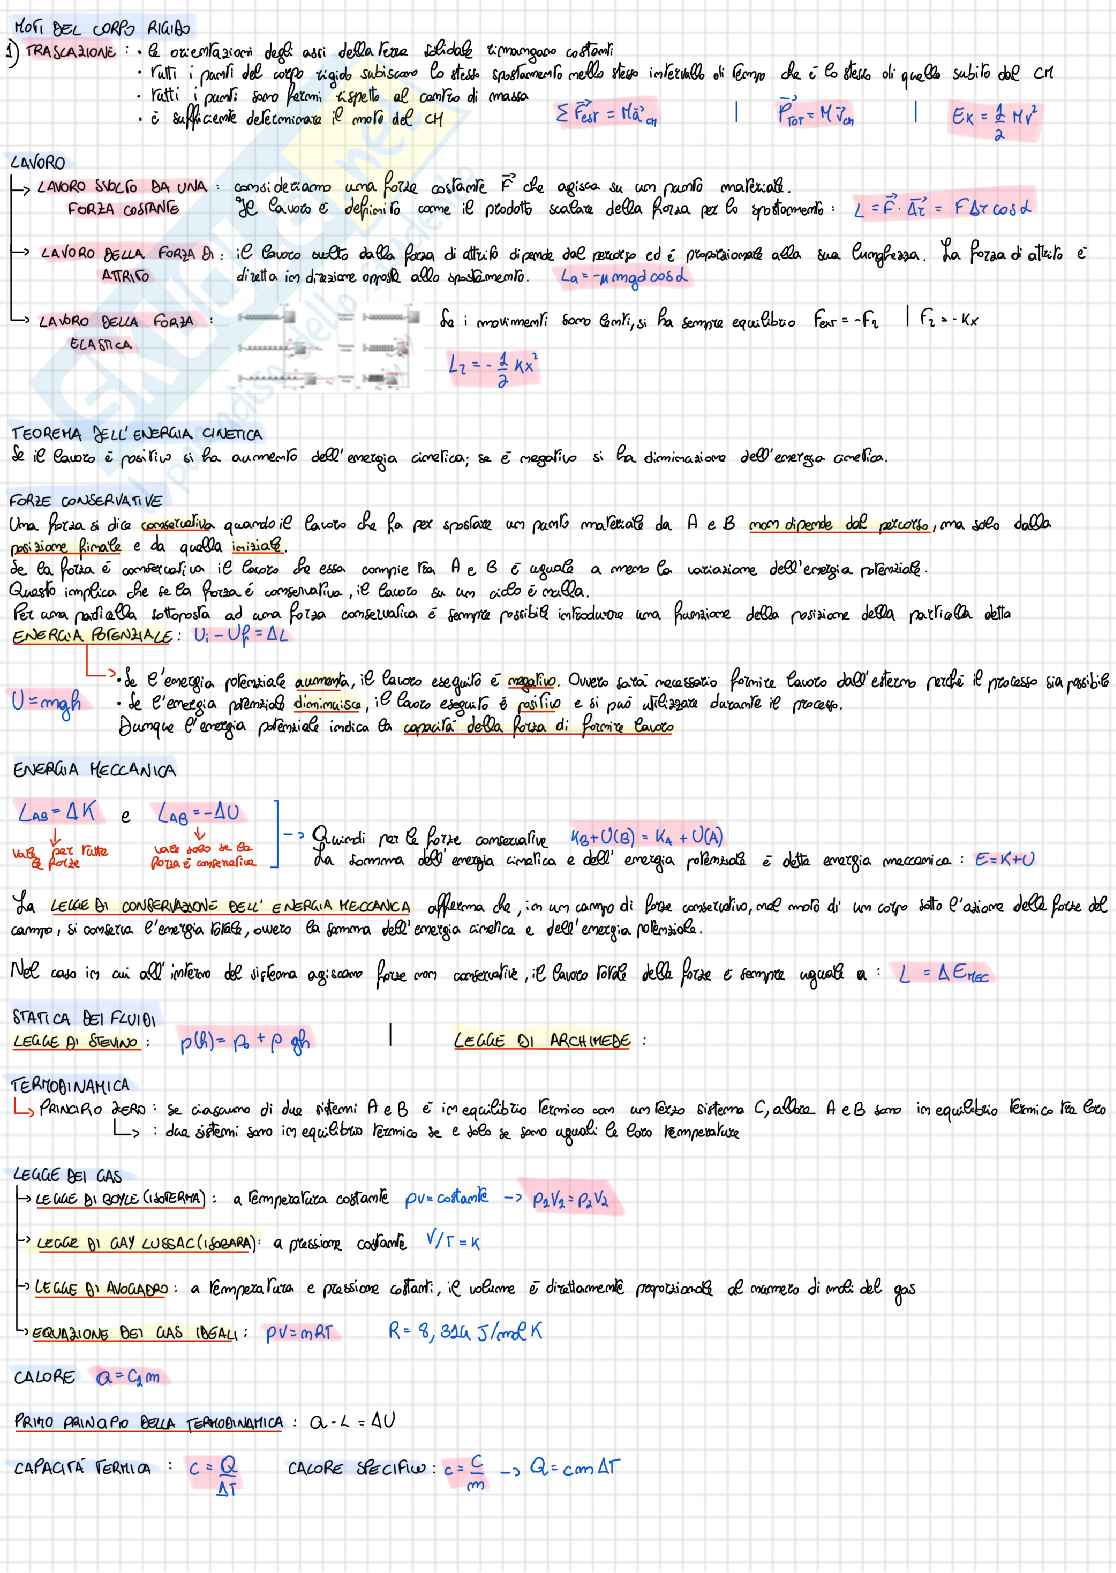 MOTI DEL CORPO RIGIDO
1) TRASLAZIONE : • le orientazioni degli assi della terna solidale rimangono costanti
• tutti i punti del corpo rigido subiscono lo stesso spostamento nello stesso intervallo di tempo che è lo stesso di quello subito dal CM
• tutti i punti sono fermi rispetto al centro di massa
• è sufficiente determinare il moto del CM Σ F⃗est = M a⃗CM | P⃗TOT = M v⃗CM | EK = 1/2 Mv²
LAVORO
→ LAVORO SVOLTO DA UNA : consideriamo una forza costante F⃗ che agisca su un punto materiale.
FORZA COSTANTE Il lavoro è definito come il prodotto scalare della forza per lo spostamento : L = F⃗ · Δr⃗ = F Δr cos α
→ LAVORO DELLA FORZA DI : il lavoro svolto dalla forza di attrito dipende dal percorso ed è proporzionale alla sua lunghezza. La forza di attrito è
ATTRITO diretta in direzione opposta allo spostamento. La = -μmgd cos α
→ LAVORO DELLA FORZA : Se i movimenti sono lenti, si ha sempre equilibrio Fext = -F2 | F2 = -Kx
ELASTICA
L2 = - 1/2 Kx²
TEOREMA DELL'ENERGIA CINETICA
Se il lavoro è positivo si ha aumento dell'energia cinetica; se è negativo si ha diminuzione dell'energia cinetica.
FORZE CONSERVATIVE
Una forza si dice conservativa quando il lavoro che fa per spostare un punto materiale da A e B non dipende dal percorso, ma solo dalla
posizione finale e da quella iniziale.
Se la forza è conservativa il lavoro che essa compie tra A e B è uguale a meno la variazione dell'energia potenziale.
Questo implica che se la forza è conservativa, il lavoro su un ciclo è nullo.
Per una particella sottoposta ad una forza conservativa è sempre possibile introdurre una funzione della posizione della particella detta
ENERGIA POTENZIALE : Ui - Uf = ΔL
→ • Se l'energia potenziale aumenta, il lavoro eseguito è negativo. Ovvero sarà necessario fornire lavoro dall'esterno perché il processo sia possibile
U = mgh • Se l'energia potenziale diminuisce, il lavoro eseguito è positivo e si può utilizzare durante il processo.
Dunque l'energia potenziale indica la capacità della forza di fornire lavoro
ENERGIA MECCANICA
LAB = ΔK e LAB = -ΔU
→ Quindi per le forze conservative KB + U(B) = KA + U(A)
vale per tutte le forze vale solo se la forza è conservativa
La somma dell'energia cinetica e dell'energia potenziale è detta energia meccanica : E = K+U
La LEGGE DI CONSERVAZIONE DELL'ENERGIA MECCANICA afferma che, in un campo di forze conservativo, nel moto di un corpo sotto l'azione delle forze del
campo, si conserva l'energia totale, ovvero la somma dell'energia cinetica e dell'energia potenziale.
Nel caso in cui all'interno del sistema agiscano forze non conservative, il lavoro totale delle forze è sempre uguale a : L = ΔEMEC
STATICA DEI FLUIDI
LEGGE DI STEVINO : p(h) = p0 + ρ gh | LEGGE DI ARCHIMEDE :
TERMODINAMICA
→ PRINCIPIO ZERO : se ciascuno di due sistemi A e B è in equilibrio termico con un terzo sistema C, allora A e B sono in equilibrio termico tra loro
→ : due sistemi sono in equilibrio termico se e solo se sono uguali le loro temperature
LEGGE DEI GAS
→ LEGGE DI BOYLE (ISOTERMA) : a temperatura costante pV = costante → P2V2 = P2V2
→ LEGGE DI GAY LUSSAC (ISOBARA) : a pressione costante V/T = K
→ LEGGE DI AVOGADRO : a temperatura e pressione costanti, il volume è direttamente proporzionale al numero di moli del gas
→ EQUAZIONE DEI GAS IDEALI : PV = nRT R = 8,314 J/mol K
CALORE Q = C2 m
PRIMO PRINCIPIO DELLA TERMODINAMICA : Q - L = ΔU
CAPACITÀ TERMICA : C = Q/ΔT CALORE SPECIFICO : c = C/m → Q = cm ΔT